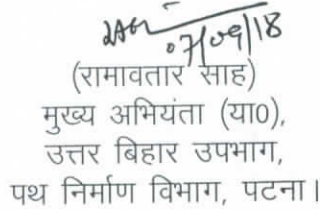 07/09/18
(रामावतार साह)
मुख्य अभियंता (या0),
उत्तर बिहार उपभाग,
पथ निर्माण विभाग, पटना।